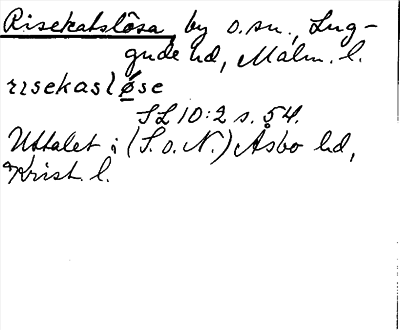 Risekatslösa, by o. sn., Lug-
gude hd, Malm. l.
risekasløse
SL 10:2 s. 54.
Uttalet i (S. o. N.) Åsbo hd,
Krist. l.